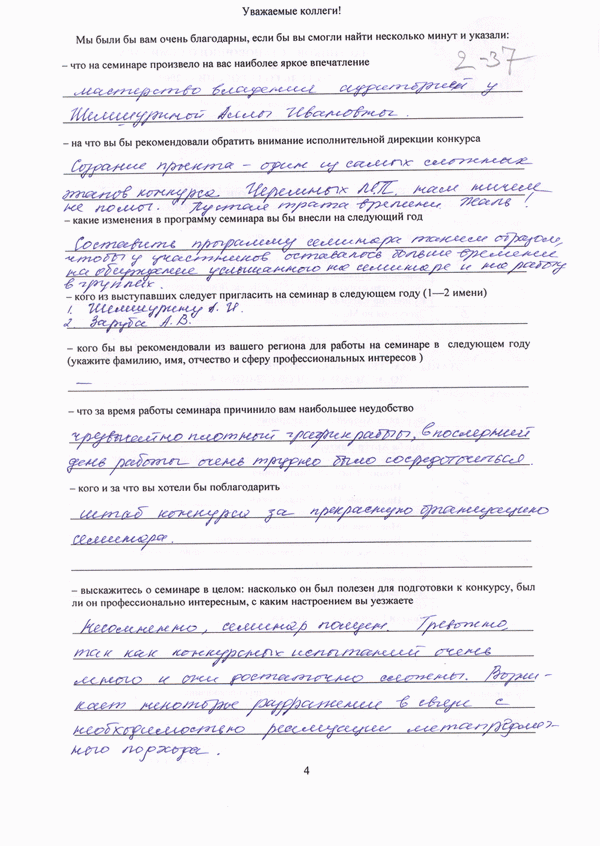 Уважаемые коллеги!
Мы были бы вам очень благодарны, если бы вы смогли найти несколько минут и указали:
2-37
– что на семинаре произвело на вас наиболее яркое впечатление
мастерство владения аудиторией у
Шелишуриной Аллы Ивановны.
– на что вы бы рекомендовали обратить внимание исполнительной дирекции конкурса
Создание проекта – один из самых сложных
этапов конкурса. Черемных М.П. нам ничем
не помог. Пустая трата времени. Жаль!
– какие изменения в программу семинара вы бы внесли на следующий год
Составить программу семинара таким образом,
чтобы у участников оставалось больше времени
на обсуждение услышанного на семинаре и на работу
в группах.
– кого из выступавших следует пригласить на семинар в следующем году (1—2 имени)
1. Шелишурину А. И.
2. Заруба А.В.
– кого бы вы рекомендовали из вашего региона для работы на семинаре в следующем году
(укажите фамилию, имя, отчество и сферу профессиональных интересов )
—
– что за время работы семинара причинило вам наибольшее неудобство
чрезвычайно плотный график работы, в последний
день работы очень трудно было сосредоточиться.
– кого и за что вы хотели бы поблагодарить
штаб конкурса за прекрасную организацию
семинара.
– выскажитесь о семинаре в целом: насколько он был полезен для подготовки к конкурсу, был
ли он профессионально интересным, с каким настроением вы уезжаете
Несомненно, семинар полезен. Тревожно,
так как конкурсных испытаний очень
много и они достаточно сложны. Возни-
кает некоторое раздражение в связи с
необходимостью реализации метапредмет-
ного подхода.
4